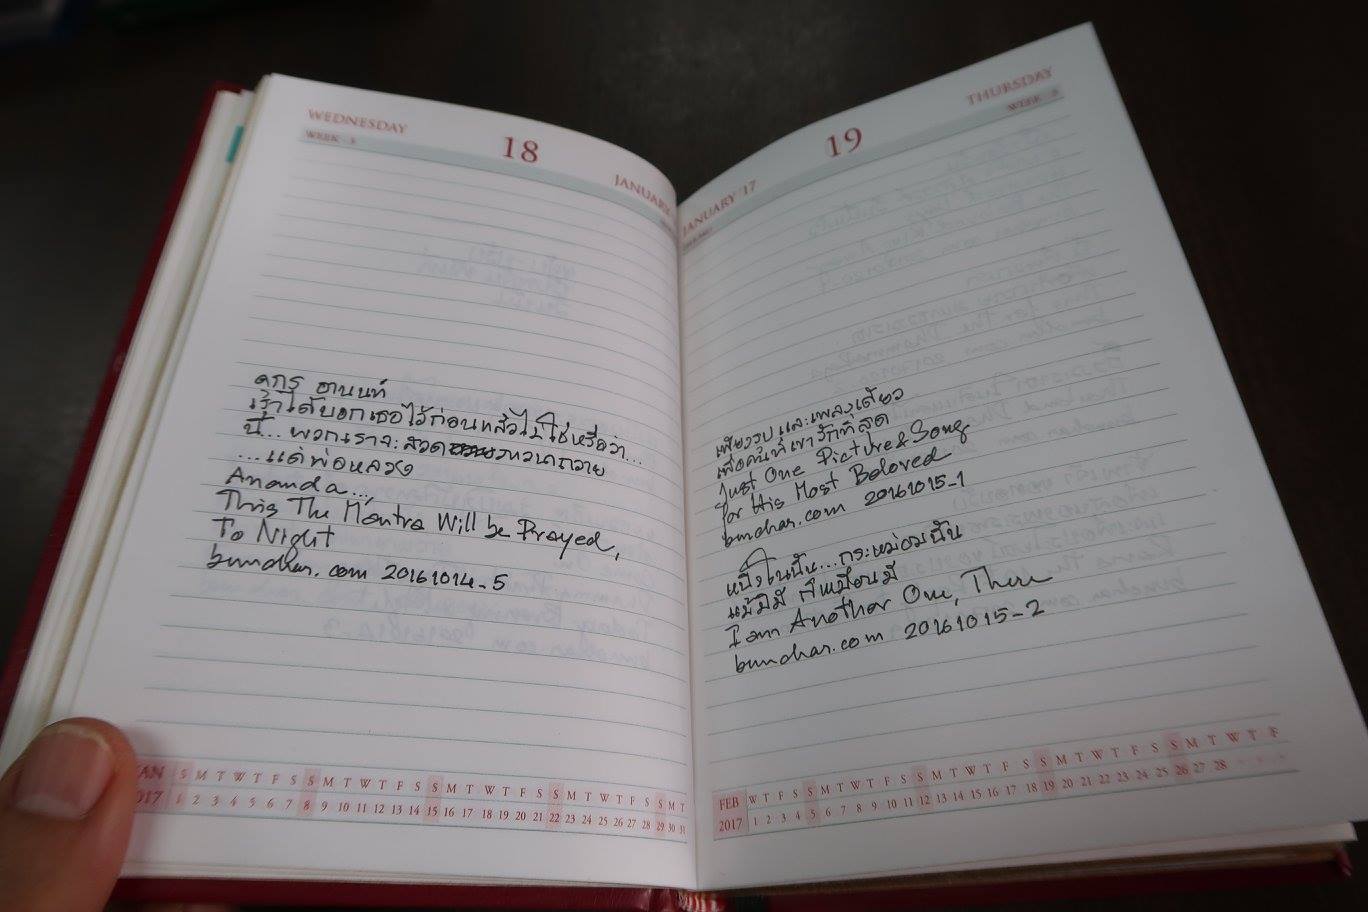 WEDNESDAY
18
WEEK - 3
JANUARY
ดูกร อานนท์
เราได้บอกเธอไว้ก่อนแล้วไม่ใช่หรือว่า...
นี้... พวกเราจะสวด
...แด่พ่อหลวง
Ananda...,
This The Mantra Will be Prayed,
To Night
bundhar.com 20161014-5
JAN S M T W T F S S M T W T F S S M T W T F S S M T W T F S S M T
2017 1 2 3 4 5 6 7 8 9 10 11 12 13 14 15 16 17 18 19 20 21 22 23 24 25 26 27 28 29 30 31
THURSDAY
19
WEEK - 3
JANUARY '17
เพียงรูป และเพลงเดียว
เพื่อคนที่เขารักที่สุด
Just One Picture & Song
for His Most Beloved
bundhar.com 20161015-1
หนึ่งในนั้น...กระหม่อมฉัน
แม้มิมี ก็เหมือนมี
I am Another One, There
bundhar.com 20161015-2
FEB W T F S S M T W T F S S M T W T F S S M T W T F S S M T W T F
2017 1 2 3 4 5 6 7 8 9 10 11 12 13 14 15 16 17 18 19 20 21 22 23 24 25 26 27 28